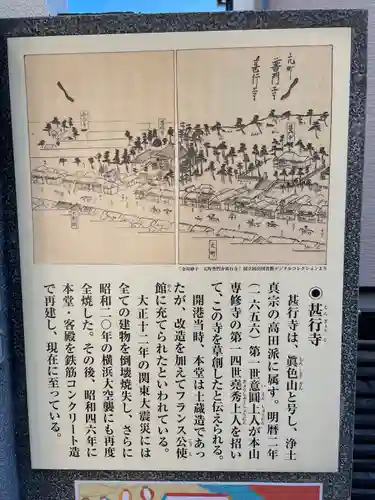 元町
普門寺
甚行寺
元町
「金川砂子 元町普門寺甚行寺」国立国会図書館デジタルコレクションより
●甚行寺
甚行寺は、眞色山と号し、浄土
真宗の高田派に属す。明暦二年
(一六五六)第一世意圓上人が本山
専修寺の第一四世堯秀上人を招い
て、この寺を草創したと伝えられる。
開港当時、本堂は土蔵造であっ
たが、改造を加えてフランス公使
館に充てられたといわれている。
大正十二年の関東大震災には
全ての建物を倒壊焼失し、さらに
昭和二〇年の横浜大空襲にも再度
全焼した。その後、昭和四六年に
本堂・客殿を鉄筋コンクリート造
で再建し、現在に至っている。